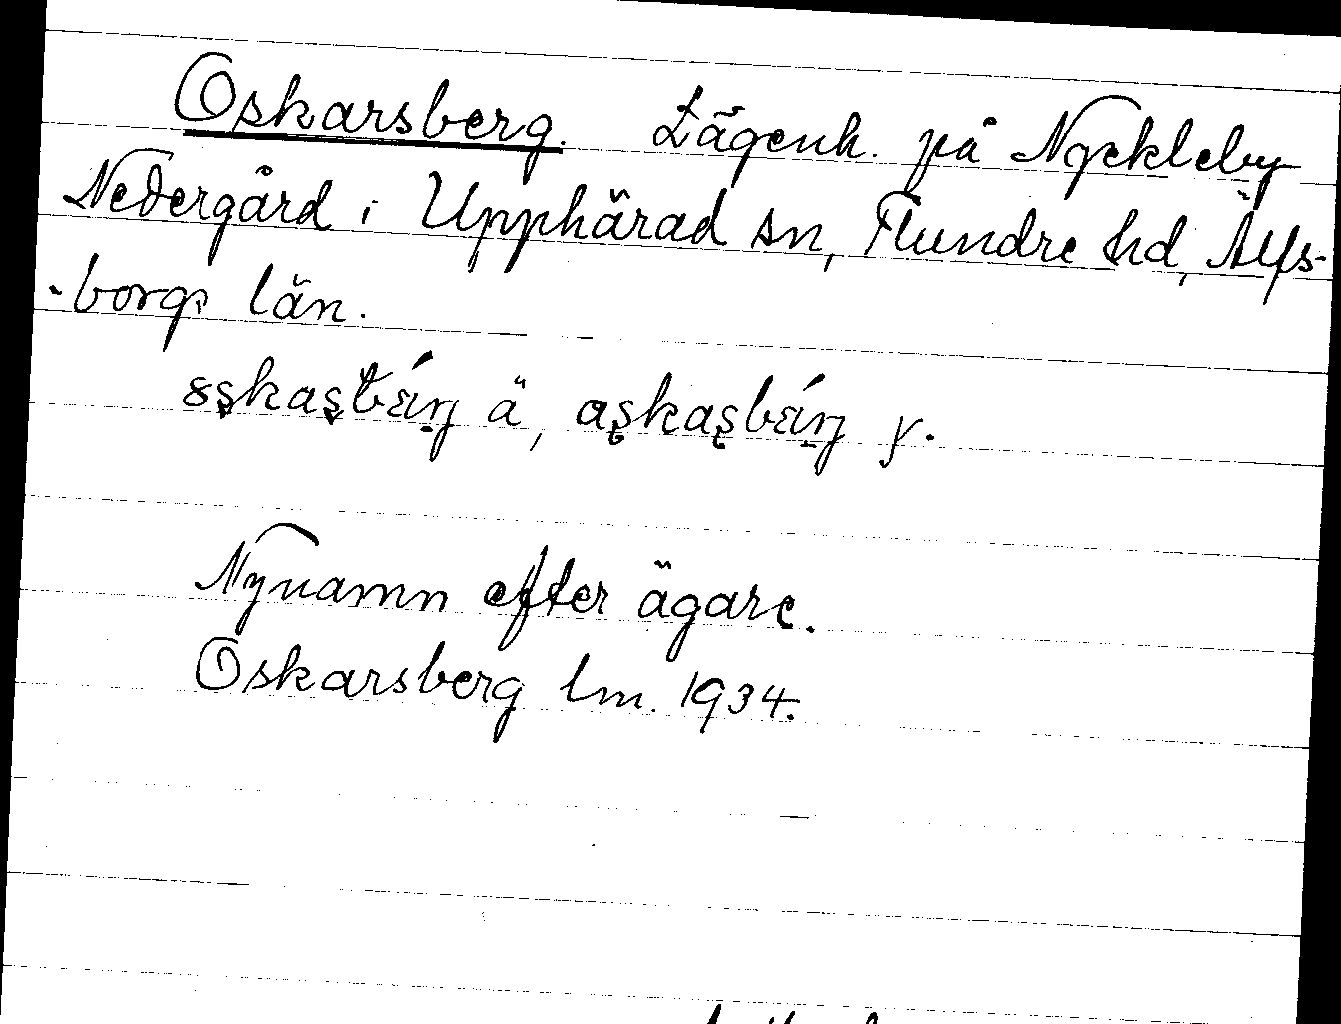 Oskarsberg. Lägenh. på Nyckleby
Nedergård i Upphärad sn, Flundre hd, Älfs-
-borgs län.
ä, y.
Nynamn efter ägare.
Oskarsberg lm. 1934.